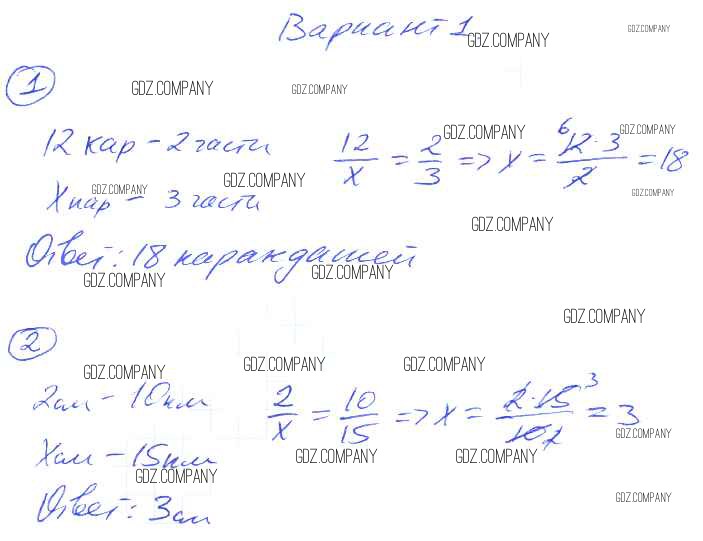 Вариант 1
GDZ.COMPANY
GDZ.COMPANY
1
GDZ.COMPANY
GDZ.COMPANY
12 кар – 2 части 12/x = 2/3 => x = 12·3/2 = 18
6
GDZ.COMPANY
GDZ.COMPANY
X кар – 3 части
GDZ.COMPANY
GDZ.COMPANY
GDZ.COMPANY
GDZ.COMPANY
Ответ: 18 карандашей
GDZ.COMPANY
GDZ.COMPANY
GDZ.COMPANY
2
GDZ.COMPANY
GDZ.COMPANY
GDZ.COMPANY
2 см – 10 км 2/x = 10/15 => x = 2·15/10 = 3
3
2
GDZ.COMPANY
X см – 15 км
GDZ.COMPANY
GDZ.COMPANY
GDZ.COMPANY
Ответ: 3 см
GDZ.COMPANY